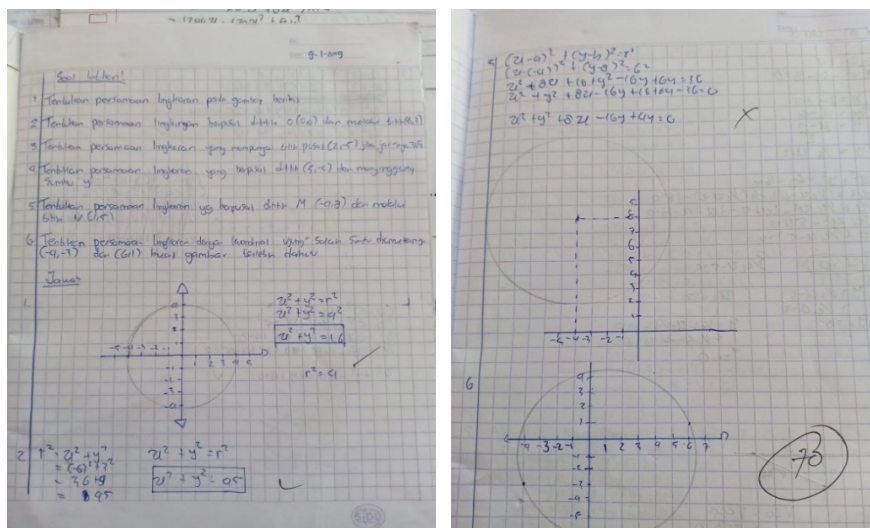 Soal latihan!
1 Tentukan persamaan lingkaran pada gambar berikut
2 Tentukan persamaan lingkungan berpusat dititik O(0,0) dan melalui titik
3 Tentukan persamaan lingkaran yang mempunyai titik pusat (2,-5) dan jari-jarinya
4 Tentukan persamaan lingkaran yang berpusat dititik dan menyinggung
Sumbu y
5 Tentukan persamaan lingkaran yg berpusat dititik M (-4,8) dan melalui
titik N
6 Tentukan persamaan lingkaran dengan koordinat ujung" Salah Satu diameternya
(-4,-3) dan (6,1) buat gambar terlebih dahulu
Jawab
1.
x² + y² = r²
x² + y² = 4²
x² + y² = 16
r² = 4
-5 -4 -3 -2 -1
1 2 3 4 5
2. r² = x² + y²
= (-6)² + 3²
= 36 + 9
= 45
x² + y² = r²
x² + y² = 45
5 (x-a)² + (y-b)² = r²
(x-(-4))² + (y-8)² = 6²
x² + 8x + 16 + y² - 16y + 64 = 36
x² + y² + 8x - 16y + 16 + 64 - 36 = 0
x² + y² + 8x - 16y + 44 = 0
9
8
7
6
5
4
3
2
1
-5 -4 -3 -2 -1
6
4
3
2
1
-4 -3 -2 -1 1 2 3 4 5 6 7
70